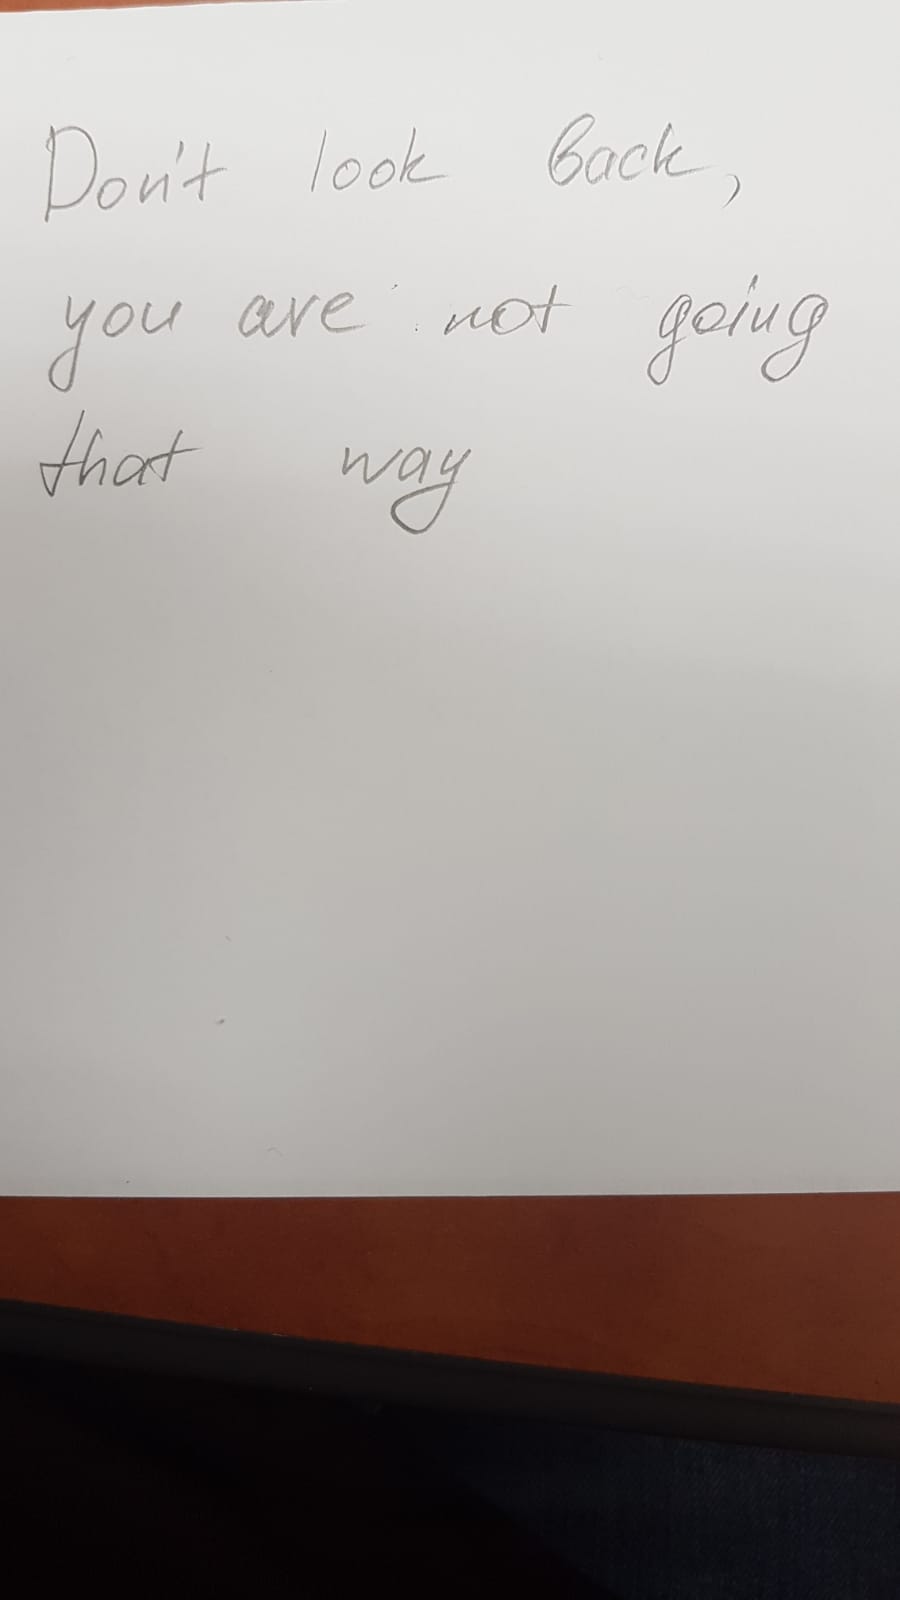 Don't look back,
you are not going
that way